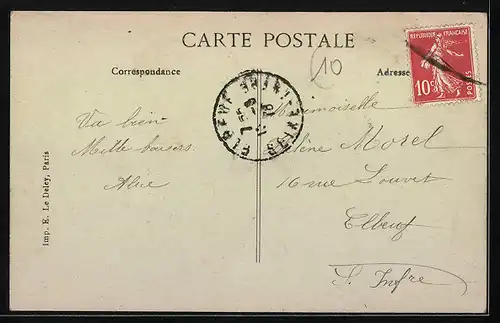 CARTE POSTALE
10
Correspondance
Adresse
REPUBLIQUE FRANÇAISE
10c
POSTES
ELBEUF
SEINE INFRE
Va bien
Mille baisers
Alice
Mademoiselle
Morel
16 rue Louvet
Elbeuf
S. Infre
Imp. E. Le Deley, Paris